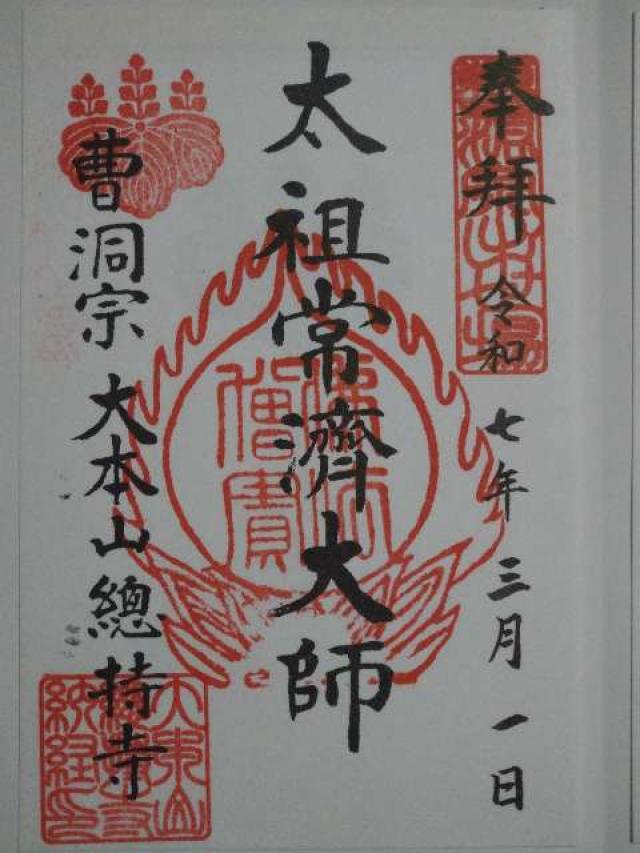 奉拜 令和七年三月一日
太祖常濟大師
曹洞宗 大本山總持寺